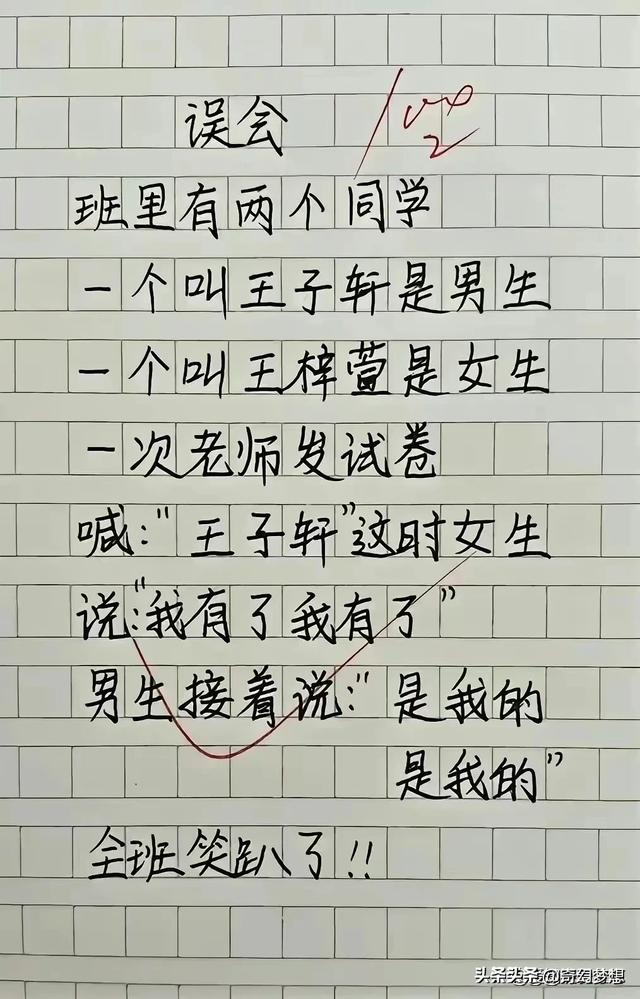 误会
班里有两个同学
一个叫王子轩是男生
一个叫王梓萱是女生
一次老师发试卷
喊:"王子轩"这时女生
说:"我有了我有了"
男生接着说:"是我的
是我的"
全班笑趴了!!
头条头条@奇幻梦想